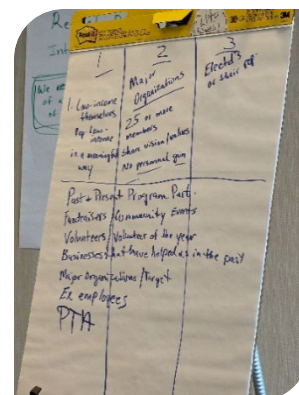 Post-it
Re
Int
We
of a
of
1
1. Low-income
themselves
Rep low-
income
in a meaningful
way
2
Major
Organizations
25 or more
members
share vision/values
No personal gain
3
Electeds
or their rep
Past & Present Program Part.
Fundraisers/Community Events
Volunteers/Volunteer of the year
Businesses that have helped us in the past
Major Organizations/Target
Ex employees
PTA